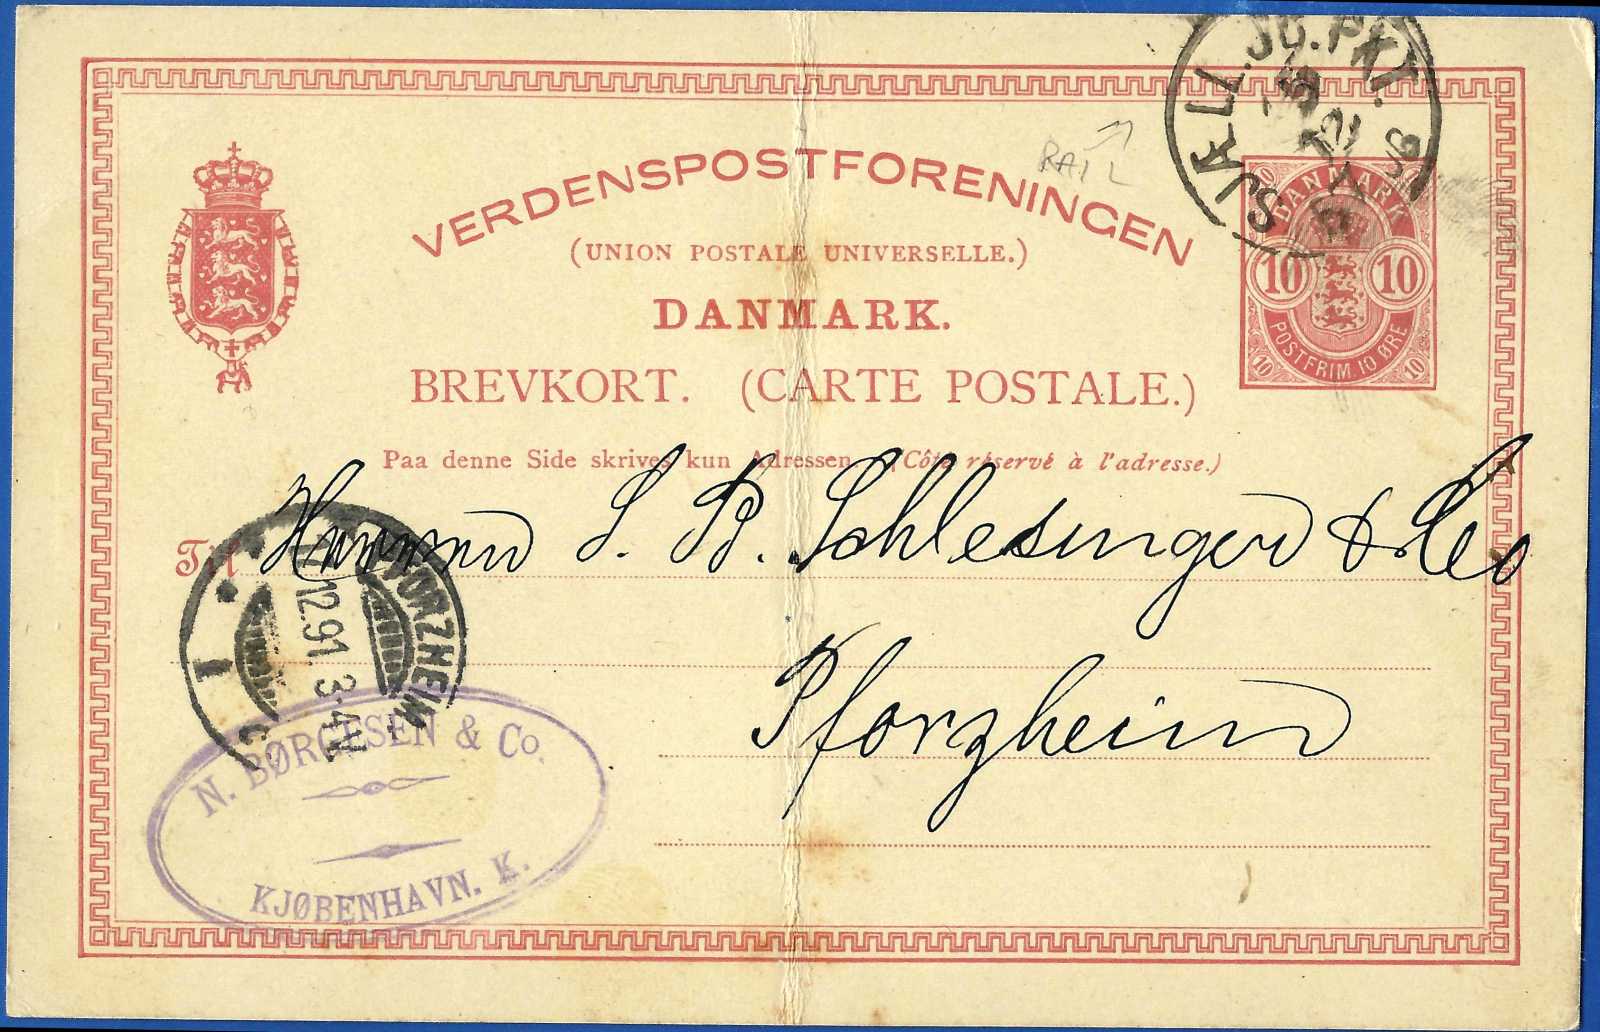 SJÆLL.JB.PKT.
RAIL
VERDENSPOSTFORENINGEN
(UNION POSTALE UNIVERSELLE.)
DANMARK
10 10
POSTFRIM 10 ØRE
10 10
DANMARK.
BREVKORT. (CARTE POSTALE.)
Paa denne Side skrives kun Adressen (Côté réservé à l'adresse.)
Til Herren S. B. Schlesinger & Co
PFORZHEIM
12.91. 3-4N
1 C
Pforzheim
N. BØRGESEN & Co.
KJØBENHAVN. K.